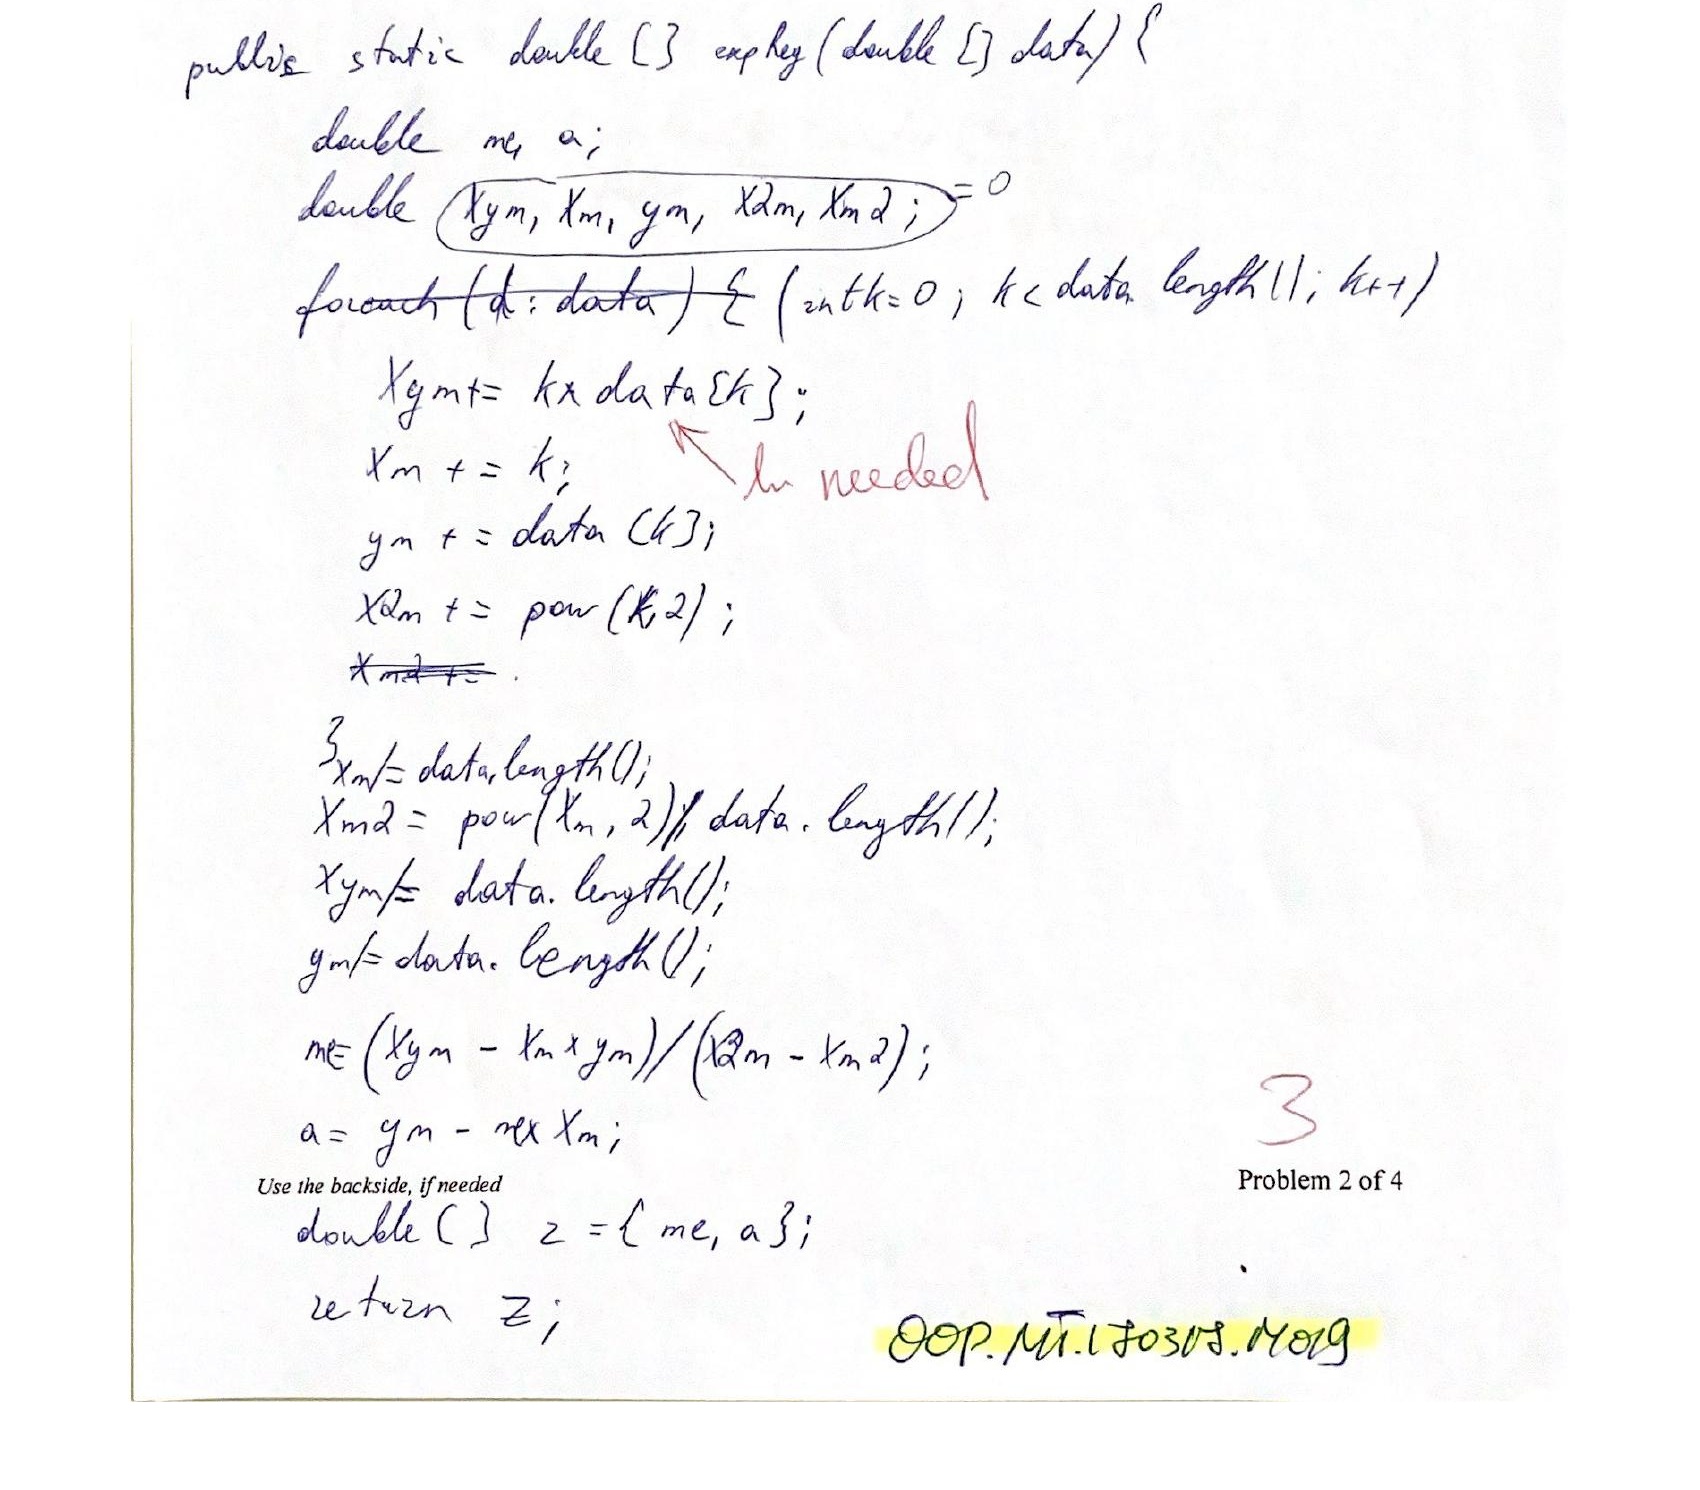 public static double [] expReg (double [] data) {
double me, a;
double Xym, Xm, ym, X2m, Xm2; = 0
foreach (d : data) { (int k=0; k< data.length(); k++)
Xym += k* data[k];
ln needed
Xm += k;
ym += data [k];
X2m += pow (k,2);
Xm2 +=
}
Xm/= data.length();
Xm2 = pow(Xm, 2)/ data.length();
Xym/= data.length();
ym/= data.length();
me= (Xym - Xm * ym)/(X2m - Xm2);
a= ym - me* Xm;
3
Use the backside, if needed
Problem 2 of 4
double [] z ={ me, a};
return z;